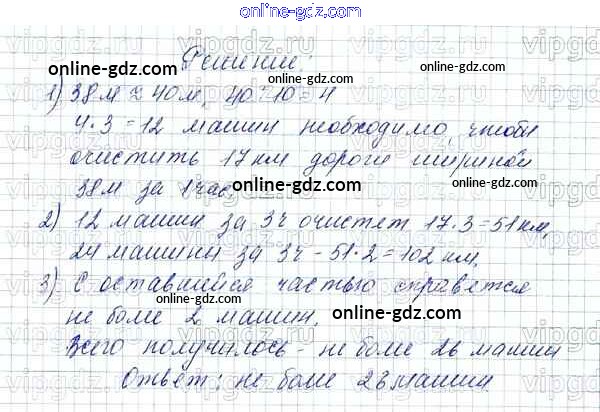 online-gdz.com
Решение:
online-gdz.com
1) 38м ≈ 40м, 40:10=4
online-gdz.com
4·3=12 машин необходимо, чтобы
очистить 17 км дороги шириной
38м за 1 час.
online-gdz.com
2) 12 машин за 3ч очистят 17·3=51 км,
online-gdz.com
24 машины за 3ч – 51·2=102 км.
3) С оставшейся частью справятся
online-gdz.com
не боле 2 машин.
online-gdz.com
Всего получилось – не боле 26 машин
Ответ: не боле 23 машин.
online-gdz.com